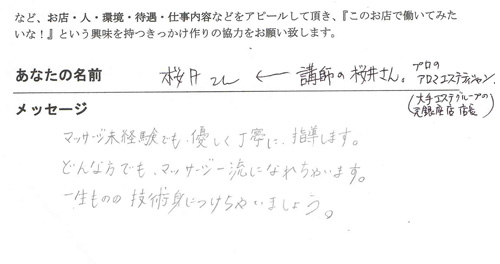 など、お店・人・環境・待遇・仕事内容などをアピールして頂き、『このお店で働いてみた
いな！』という興味を持つきっかけ作りの協力をお願い致します。
あなたの名前 桜井 ← 講師の桜井さん。プロの
アロマエステティシャン。
(大手エステグループの
元銀座店 店長)
メッセージ
マッサージ未経験でも、優しく丁寧に、指導します。
どんな方でも、マッサージ一流になれちゃいます。
一生ものの技術身につけちゃいましょう。